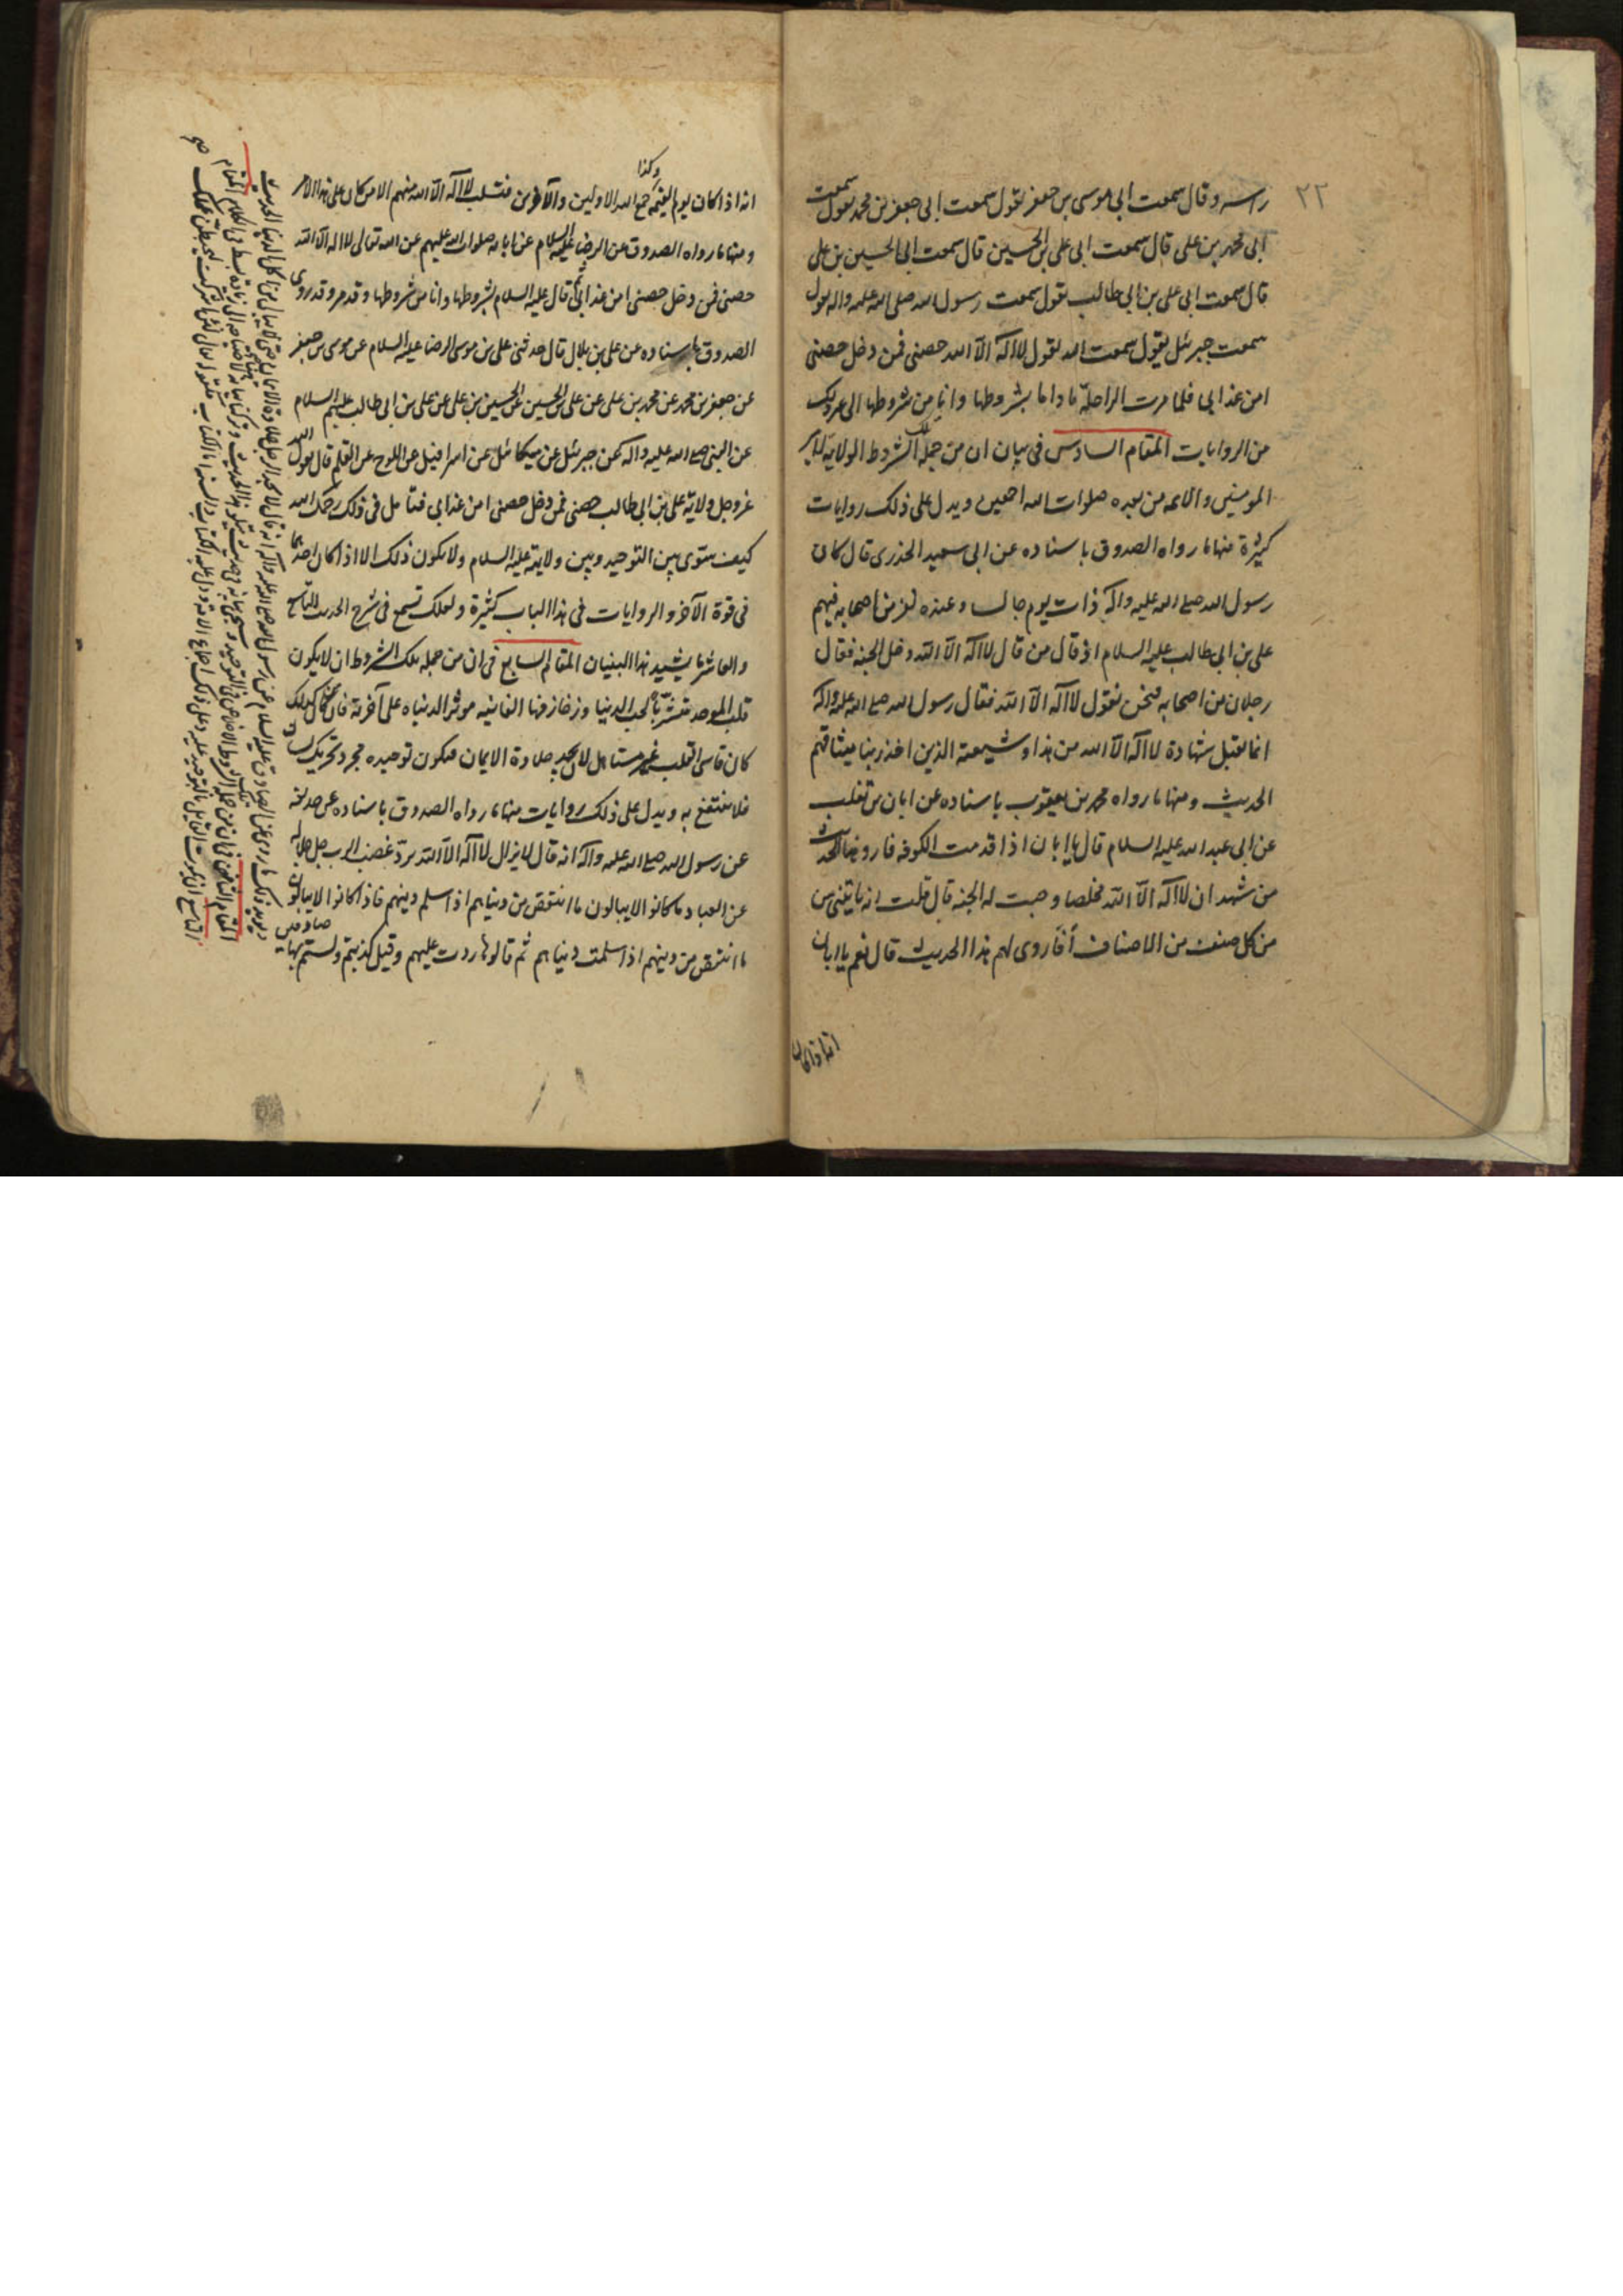 ٢٢
راسه وقال سمعت ابى موسى بن جعفر يقول سمعت ابى جعفر بن محمد يقول سمعت
ابى محمد بن على قال سمعت ابى على بن الحسين قال سمعت ابى الحسين بن على
قال سمعت ابى على بن ابى طالب يقول سمعت رسول الله صلى الله عليه واله يقول
سمعت جبرئيل يقول سمعت الله يقول لا اله الا الله حصنى فمن دخل حصنى
امن عذابى فلما مرت الراحلة نادانا بشروطها وانا من شروطها الى غير ذلك
من الروايات المقام السادس فى بيان ان من جملة تلك الشروط الولاية لامير
المومنين والائمه من بعده صلوات الله اجمعين ويدل على ذلك روايات
كثيرة منها ما رواه الصدوق باسناده عن ابى سعيد الخدرى قال كان
رسول الله صلى الله عليه واله ذات يوم جالسا وعنده نفر من اصحابه فيهم
على بن ابى طالب عليه السلام اذ قال من قال لا اله الا الله دخل الجنة فقال
رجلان من اصحابه فنحن نقول لا اله الا الله فقال رسول الله صلى الله عليه واله
انما تقبل شهادة لا اله الا الله من هذا وشيعته الذين اخذ ربنا ميثاقهم
الحديث ومنها ما رواه محمد بن يعقوب باسناده عن ابان بن تغلب
عن ابى عبد الله عليه السلام قال يا ابان اذا قدمت الكوفه فارو هذا الحديث
من شهد ان لا اله الا الله مخلصا وجبت له الجنة قال قلت انه ياتينى من
من كل صنف من الاصناف أفأروى لهم هذا الحديث قال نعم يا ابان
انه اذا كان
انه اذا كان يوم القيمة جمع الله الاولين والآخرين فتسلب لا اله الا الله منهم الا من كان على هذا الامر
وكذا
ومنها ما رواه الصدوق عن الرضا عليه السلام عن ابائه صلوات الله عليهم عن الله تعالى لا اله الا الله
حصنى فمن دخل حصنى امن عذابى ثم قال عليه السلام بشروطها وانا من شروطها وقد مر وقد روى
الصدوق باسناده عن على بن بلال قال حدثنى على بن موسى الرضا عليه السلام عن موسى بن جعفر
عن جعفر بن محمد عن محمد بن على عن على بن الحسين عن الحسين بن على عن على بن ابى طالب عليهم السلام
عن النبى صلى الله عليه واله عن جبرئيل عن ميكائيل عن اسرافيل عن اللوح عن القلم قال يقول الله
عز وجل ولاية على بن ابى طالب حصنى فمن دخل حصنى امن عذابى فتامل فى ذلك رحمك الله
كيف سوى بين التوحيد وبين ولايته عليه السلام ولا يكون ذلك الا اذا كان احدهما
فى قوة الآخر والروايات فى هذا الباب كثيرة ولعلك تسمع فى شرح الحديث التاسع
والعاشر ما يشيد هذا البنيان المقام السابع فى ان من جملة تلك الشروط ان لا يكون
قلب الموحد متشربا لحب الدنيا وزخارفها الفانيه موثرا لدنياه على آخرته فان من كان كذلك
كان قاسى القلب غير مستاهل لان يجد حلاوة الايمان فيكون توحيده مجرد تحريك لسان
فلا ينتفع به ويدل على ذلك روايات منها ما رواه الصدوق باسناده عن حذيفه
عن رسول الله صلى الله عليه واله انه قال لا يزال لا اله الا الله يرد غضب الرب جل جلاله
عن العباد ما كانوا لا يبالون ما انتقص من دنياهم اذا سلم دينهم فاذا كانوا لا يبالون
ما انتقص من دينهم اذا سلمت دنياهم ثم قالوها ردت عليهم وقيل كذبتم ولستم بها
صادقين
ويويد ذلك ما روى عن الصادق عليه السلام عن رسول الله صلى الله عليه واله انه قال لا يجد الرجل حلاوة الايمان حتى لا يبالى من اكل الدنيا الحديث
المقام الثامن فى ان من جملة الشروط الاخلاص فى التوحيد